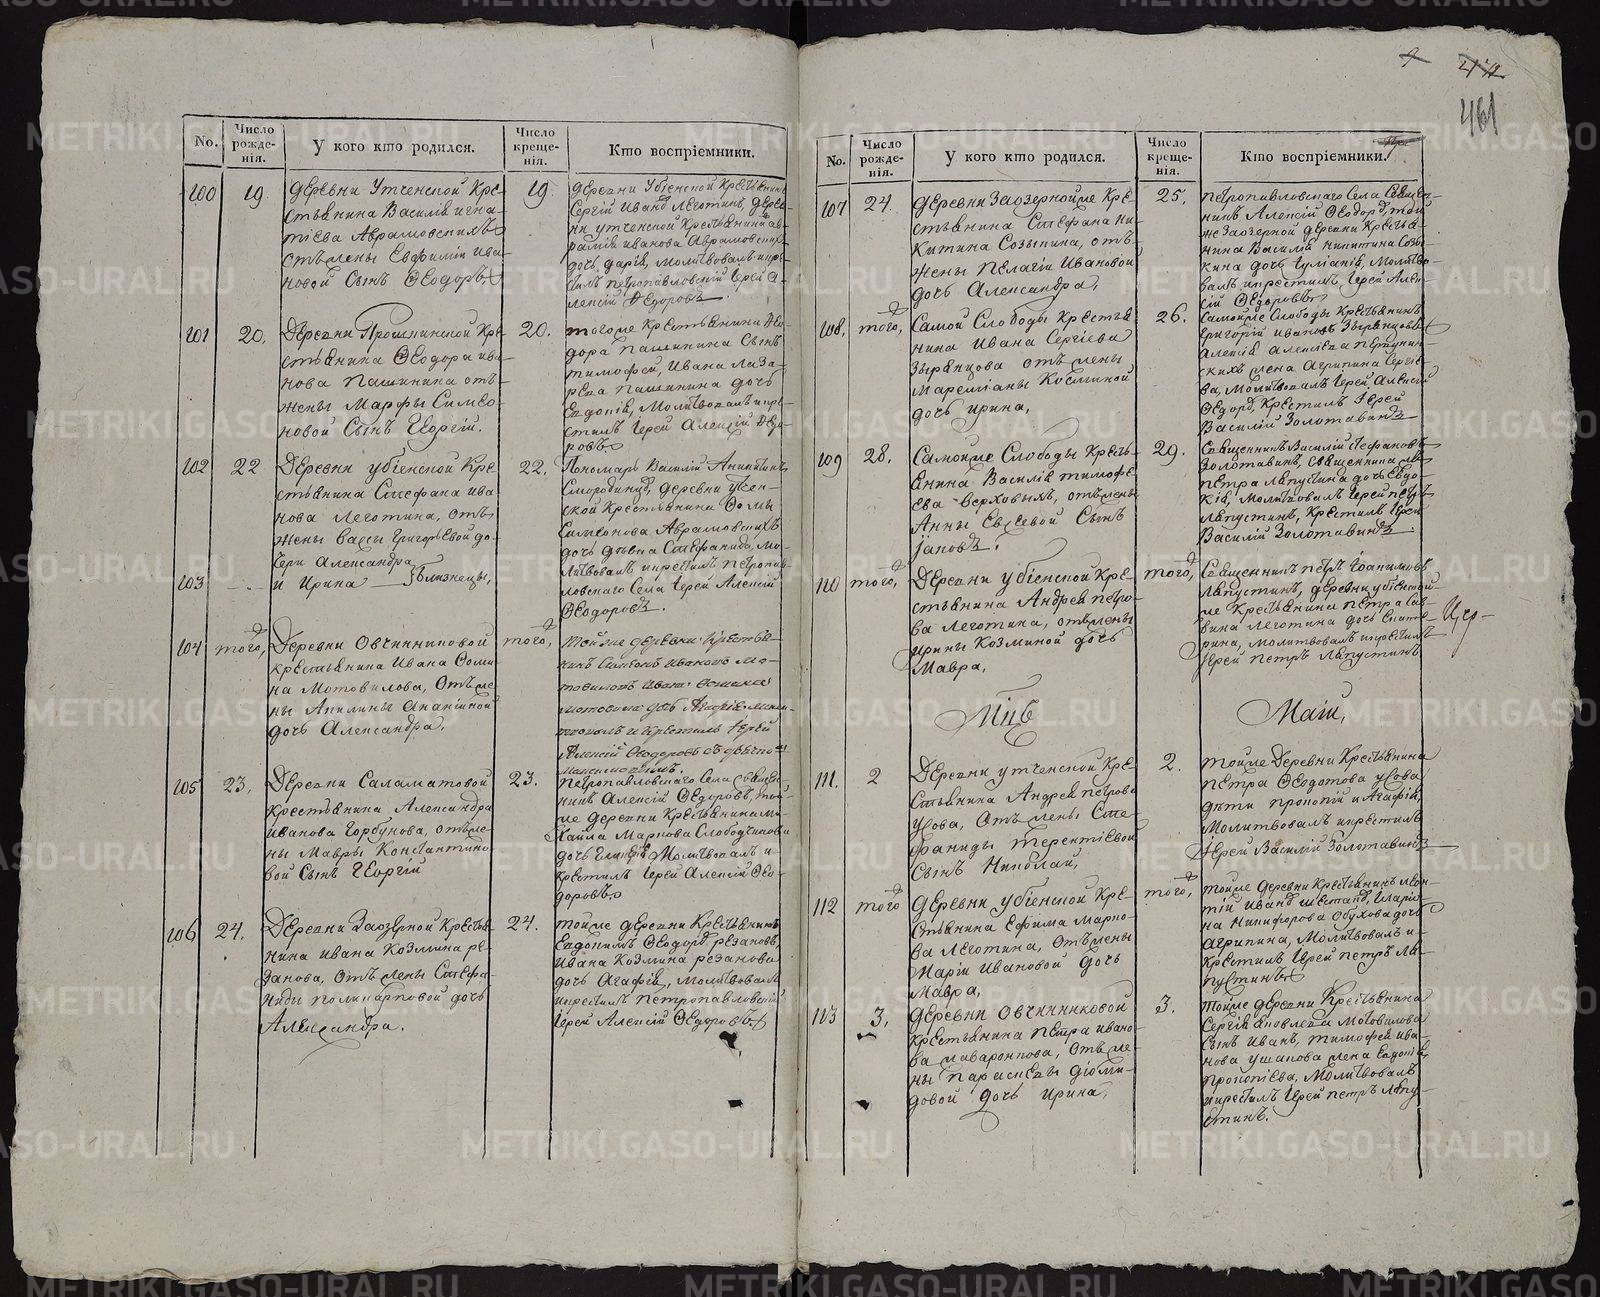 461
No.
Число рожденія.
У кого кто родился.
Число крещенія.
Кто воспріемники.
100
19
деревни Утченской Кре-
стьянина Василія игна-
тіева Аврамовскихъ
отъ жены Евфиміи ива-
новой Сынъ Ѳеодоръ,
19
деревни Убіенской Крестьянинъ
Сергій Иванъ Леготинъ, дерев-
ни утченской Крестьянина ав-
рамія иванова Аврамовскихъ
дочь дарія, Молитвовалъ и кре-
стилъ петропавловскій Іерей А-
лексій Ѳедоровъ
101
20,
Деревни Прошкинской Кре-
стьянина Ѳеодора ива-
нова Пашинина отъ
жены Марфы Симео-
новой Сынъ Георгій.
20.
тогоже Крестьянина Ѳео-
дора Пашинина Сынъ
тимофей, Ивана Лаза-
рева Пашинина дочь
Евдокія, Молитвовалъ и кре-
стилъ Іерей Алексій Ѳедо-
ровъ
102
22
Деревни убіенской Кре-
стьянина Стефана ива-
нова Леготина, отъ
жены вассы Григорьевой до-
чери Александра
103
и Ирина Близнецы,
22.
Пономарь Василій Аникитинъ
Смородинцъ, деревни утчен-
ской Крестьянина Ѳомы
Симеонова Аврамовскихъ
дочь девка Стефанида, Мо-
литвовалъ и крестилъ петропав-
ловскаго Села Іерей Алексій
Ѳеодоровъ.
104
тогож,
Деревни Овчинниковой
крестьянина Ивана Ѳоми-
на Мотовилова, Отъ же-
ны Акилины Ананіиной
дочь Александра,
тогож,
тойже деревни крестья-
нинъ Симеонъ Ивановъ Мо-
товиловъ Ивана Ѳомина
мотовилова дочь Агафія, молит-
вовалъ и крестилъ Іерей
Алексій Ѳеодоровъ
105
23,
Деревни Саламатовой
крестьянина Александра
иванова Горбунова, отъ же-
ны Мавры Константино-
вой Сынъ Георгій
23.
Петропавловскаго Села Священ-
никъ Алексій Ѳедоровъ, той-
же деревни Крестьянина ми-
хайла Маркова Слободчикова
дочь Молитвовалъ и
крестилъ Іерей Алексій Ѳео-
доровъ
106
24.
Деревни Заозерной Крестья-
нина ивана Козмина ре-
занова, Отъ жены Стефа-
ниды поликарповой дочь
Александра.
24.
тойже деревни Крестьянинъ
Евдокимъ Ѳеодоръ резановъ,
Ивана Козмина резанова
дочь Агафія, молитвовалъ
и крестилъ Петропавловскій
Іерей Алексій Ѳедоровъ
No.
Число рожденія.
У кого кто родился.
Число крещенія.
Кто воспріемники.
107
24.
деревни Заозернойже Кре-
стьянина Стефана ни-
китина Созыкина, отъ
жены Пелагіи Ивановой
дочь Александра,
25.
петропавловскаго Села Священ-
никъ Алексій Ѳеодоръ, той-
же Заозерной деревни Крестья-
нина Василія никитина Созы-
кина дочь Іуліанія, Молитво-
валъ и крестилъ Іерей Алек-
сій Ѳедоровъ
108.
тогож,
Самой Слободы Крестья-
нина Ивана Сергіева
Зырянцова отъ жены
Мареміаны Козминой
дочь ирина,
26.
Самойже Слободы Крестьянинъ
Григорій ивановъ Зырянцовъ,
Алексія Алексіева
жена Агрипина Сергіе-
ва, Молитвовалъ Іерей Алексій
Ѳедоръ, Крестилъ Іерей
Василій Золотавинъ
109
28.
Самойже Слободы Кресть-
янина Василія тимофе-
ева Верховыхъ, отъ жены
Анны Евсеевой Сынъ
Іаковъ.
29.
Священникъ Василій Стефановъ
Золотавинъ, священника
петра Ляпустина дочь Евдо-
кія, молитвовалъ Іерей петръ
Ляпустинъ, Крестилъ Іерей
Василій Золотавинъ.
110
тогож,
Деревни убіенской Кре-
стьянина Андрея петро-
ва Леготина, отъ жены
ирины Козминой дочь
Мавра,
тогож,
Священникъ петръ Іоанновъ
Ляпустинъ, деревни убіенской
же Крестьянина петра Сав-
вина Леготина дочь Екате-
рина, молитвовалъ и крестилъ
Іерей петръ Ляпустинъ
Маіи,
111.
2
Деревни утченской Кре-
стьянина Андрея петрова
Усова, Отъ жены Сте-
фаниды терентіевой
Сынъ Николай,
2.
тойже Деревни Крестьянина
петра Ѳедотова усова,
дѣти прокопій и Агафія,
Молитвовалъ и крестилъ
Іерей Василій Золотавинъ
112
тогож
деревни убіенской Кре-
стьянина Ефима Марко-
ва Леготина, Отъ жены
Маріи Ивановой дочь
Мавра,
тогож,
тойже деревни Крестьянинъ
иванъ
на Никифорова Обухова дочь
агрипина, Молитвовалъ и
крестилъ Іерей петръ Ля-
пустинъ
113
3,
деревни Овчинниковой
крестьянина петра ивано-
ва Отъ же-
ны параскевы діоми-
довой дочь ирина,
3.
тойже деревни Крестьянина
Сергія яковлева Мотовилова
Сынъ иванъ, тимофея ива-
нова ушакова жена Евдокія
прокопіева, Молитвовалъ
и крестилъ Іерей петръ Ляпу-
стинъ.